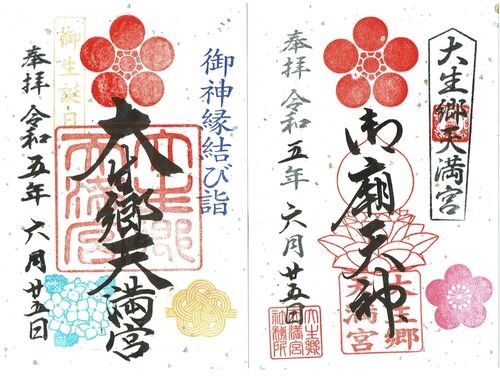 御神縁結び詣
大生郷天満宮
大生郷天満宮
御生誕日
奉拝 令和五年 六月廿五日
大生郷天満宮
御廟天神
大生郷天満宮
大生郷天満宮社務所
奉拝 令和五年 六月廿五日